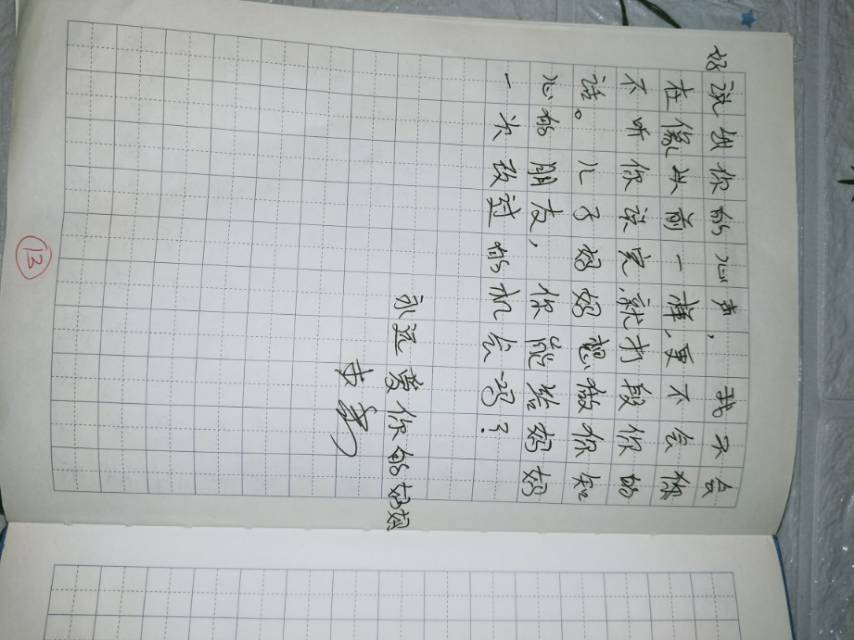 好说出你的心声，我不会
在像以前一样，更不会你
不听你说完，就打段你的
话。儿子妈妈想做你知
心的朋友，你能给妈妈
一次改过的机会吗？
永远爱你的妈妈
13